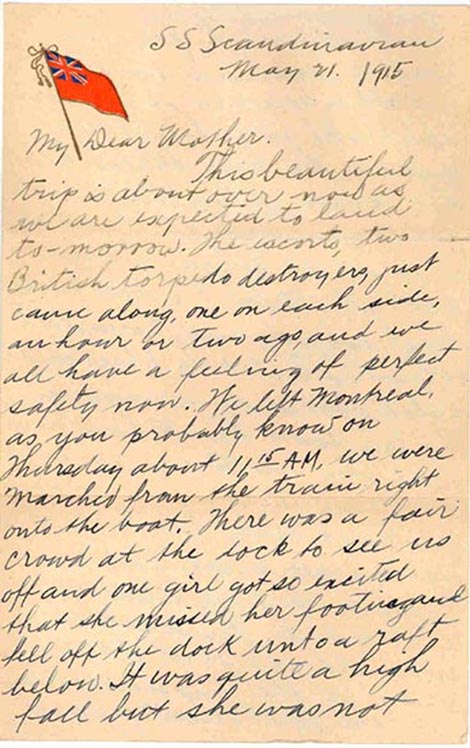 SS Scandinavian
May 21. 1915
My Dear Mother.
This beautiful
trip is about over now as
we are expected to land
to-morrow. The escorts, two
British torpedo destroyers, just
came along, one on each side,
an hour or two ago and we
all have a feeling of perfect
safety now. We left Montreal,
as, you probably know on
Thursday about 11 15 AM, we were
marched from the train right
onto the boat. There was a fair
crowd at the dock to see us
off and one girl got so excited
that she missed her footing and
fell off the dock unto a raft
below. It was quite a high
fall but she was not